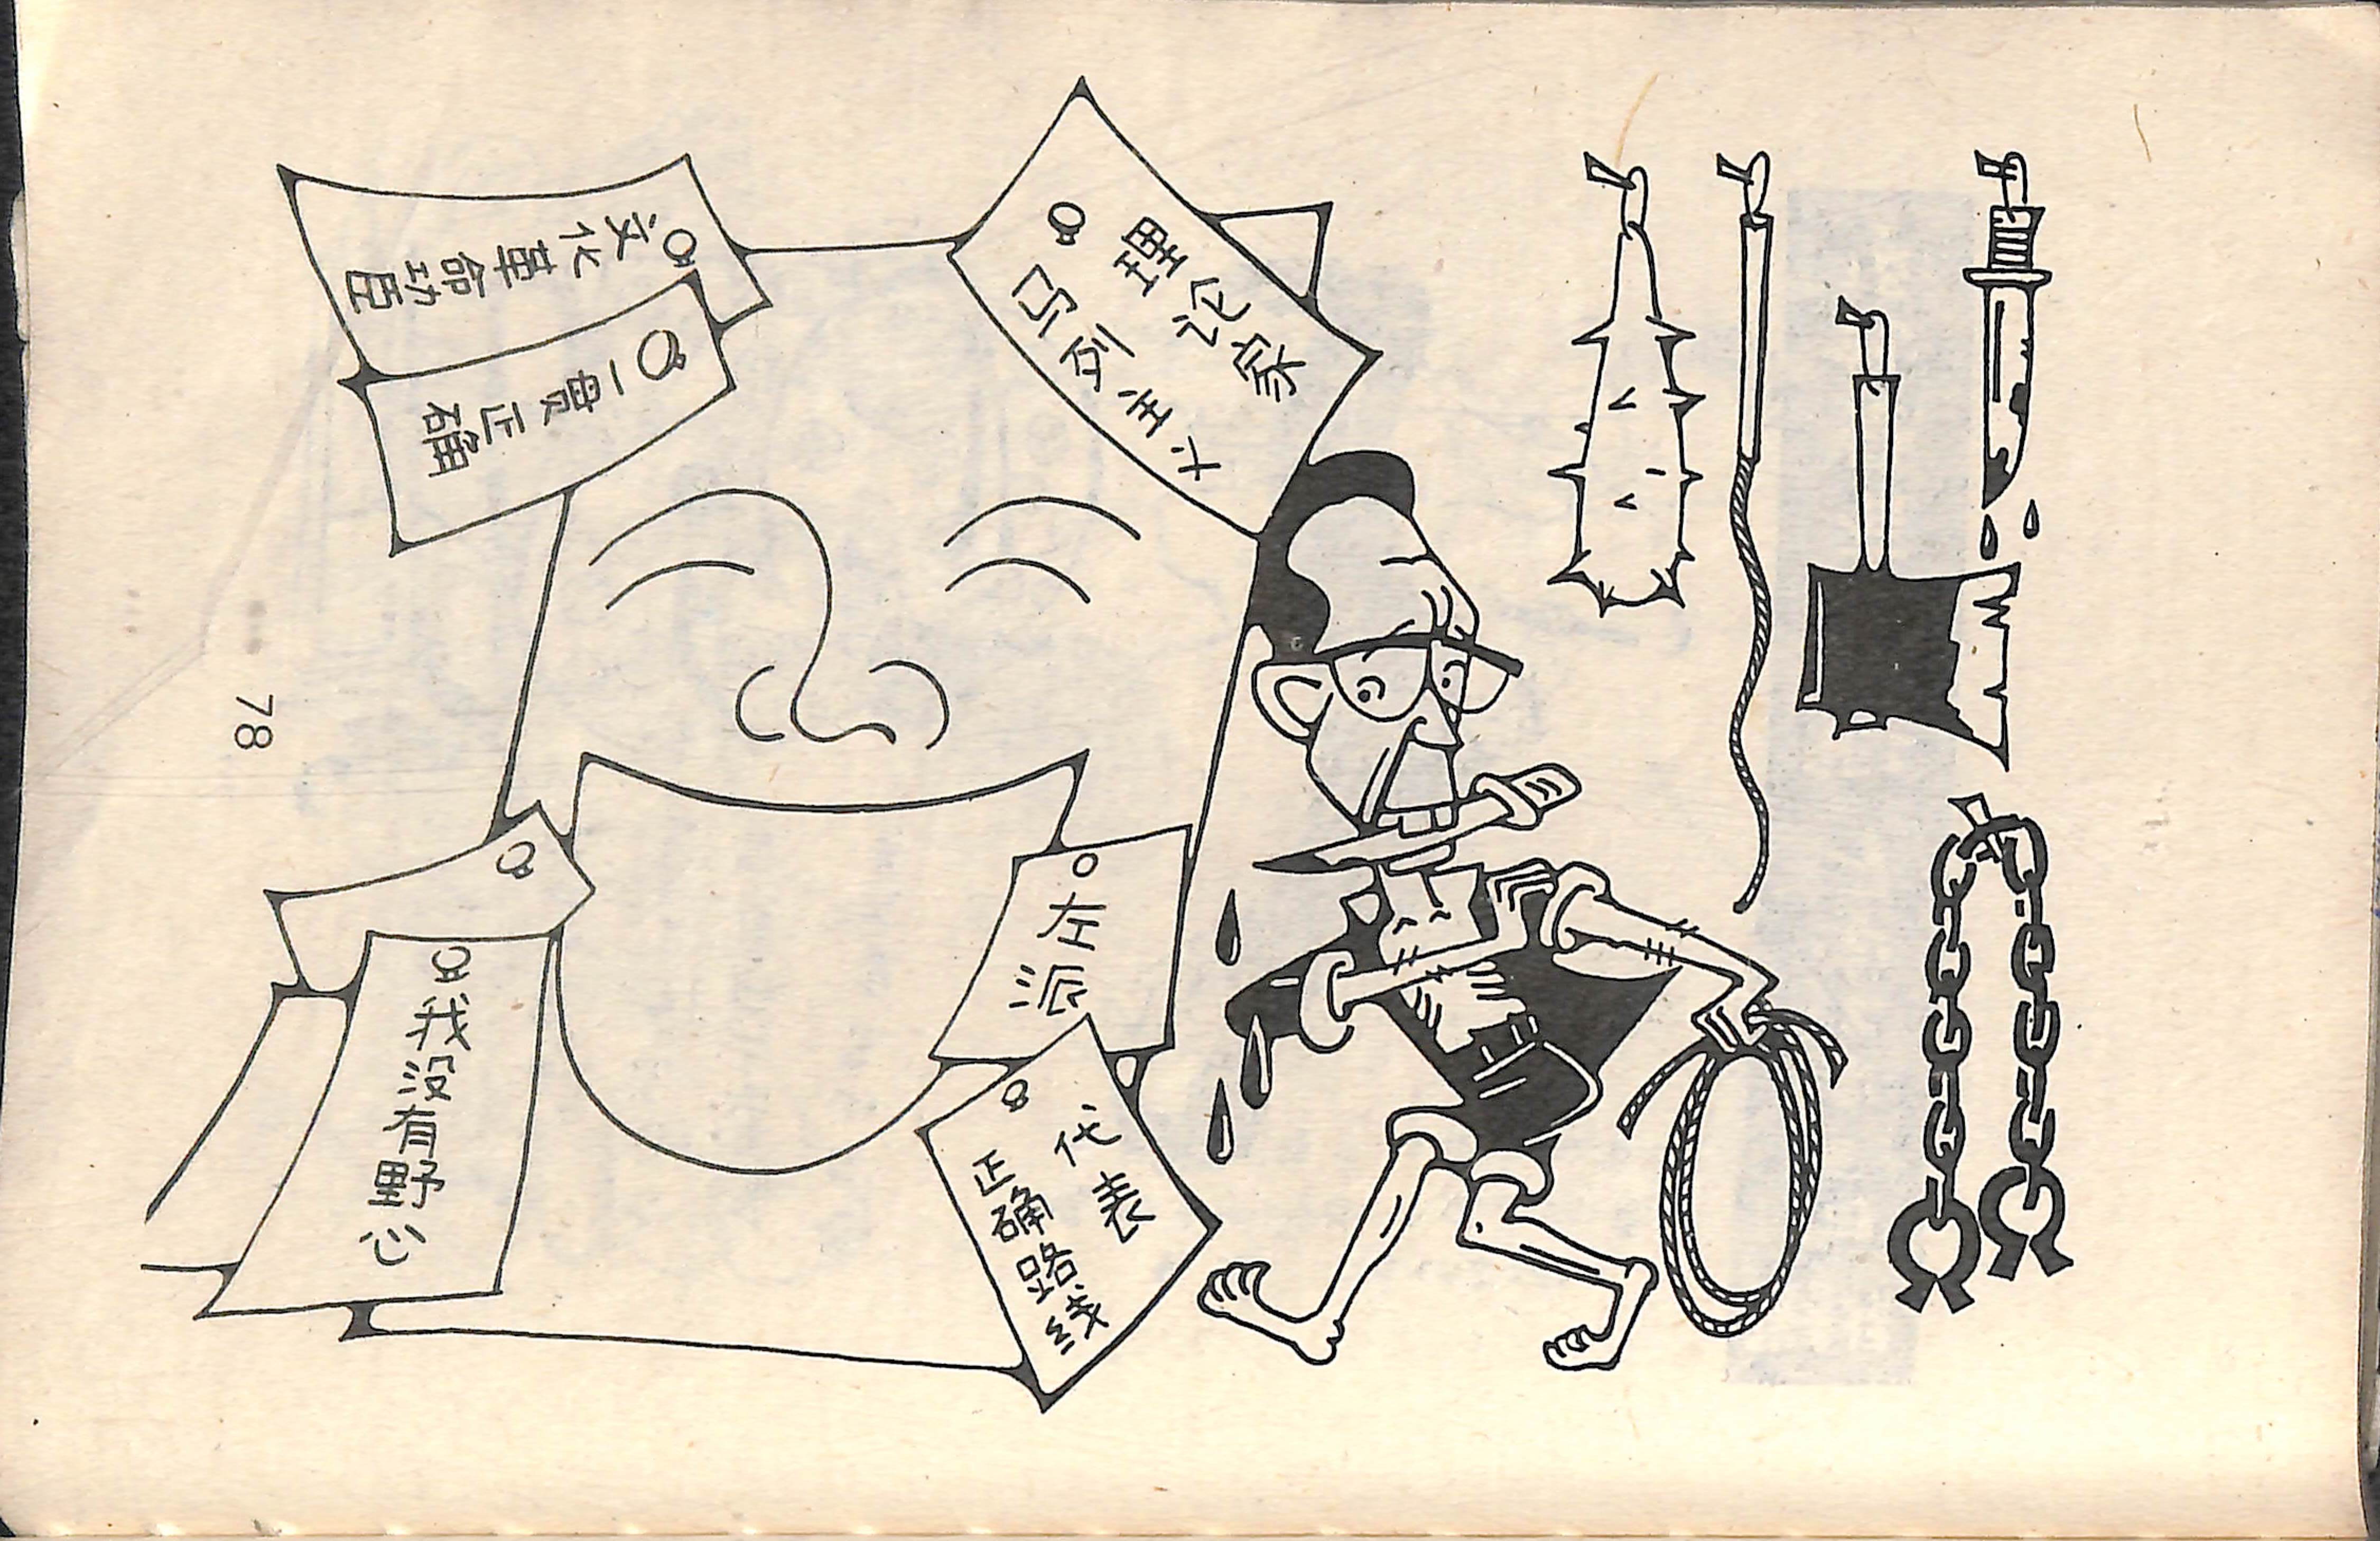 文化革命功臣
一贯正确
马列主义
理论家
左派
代表
正确路线
我没有野心
78